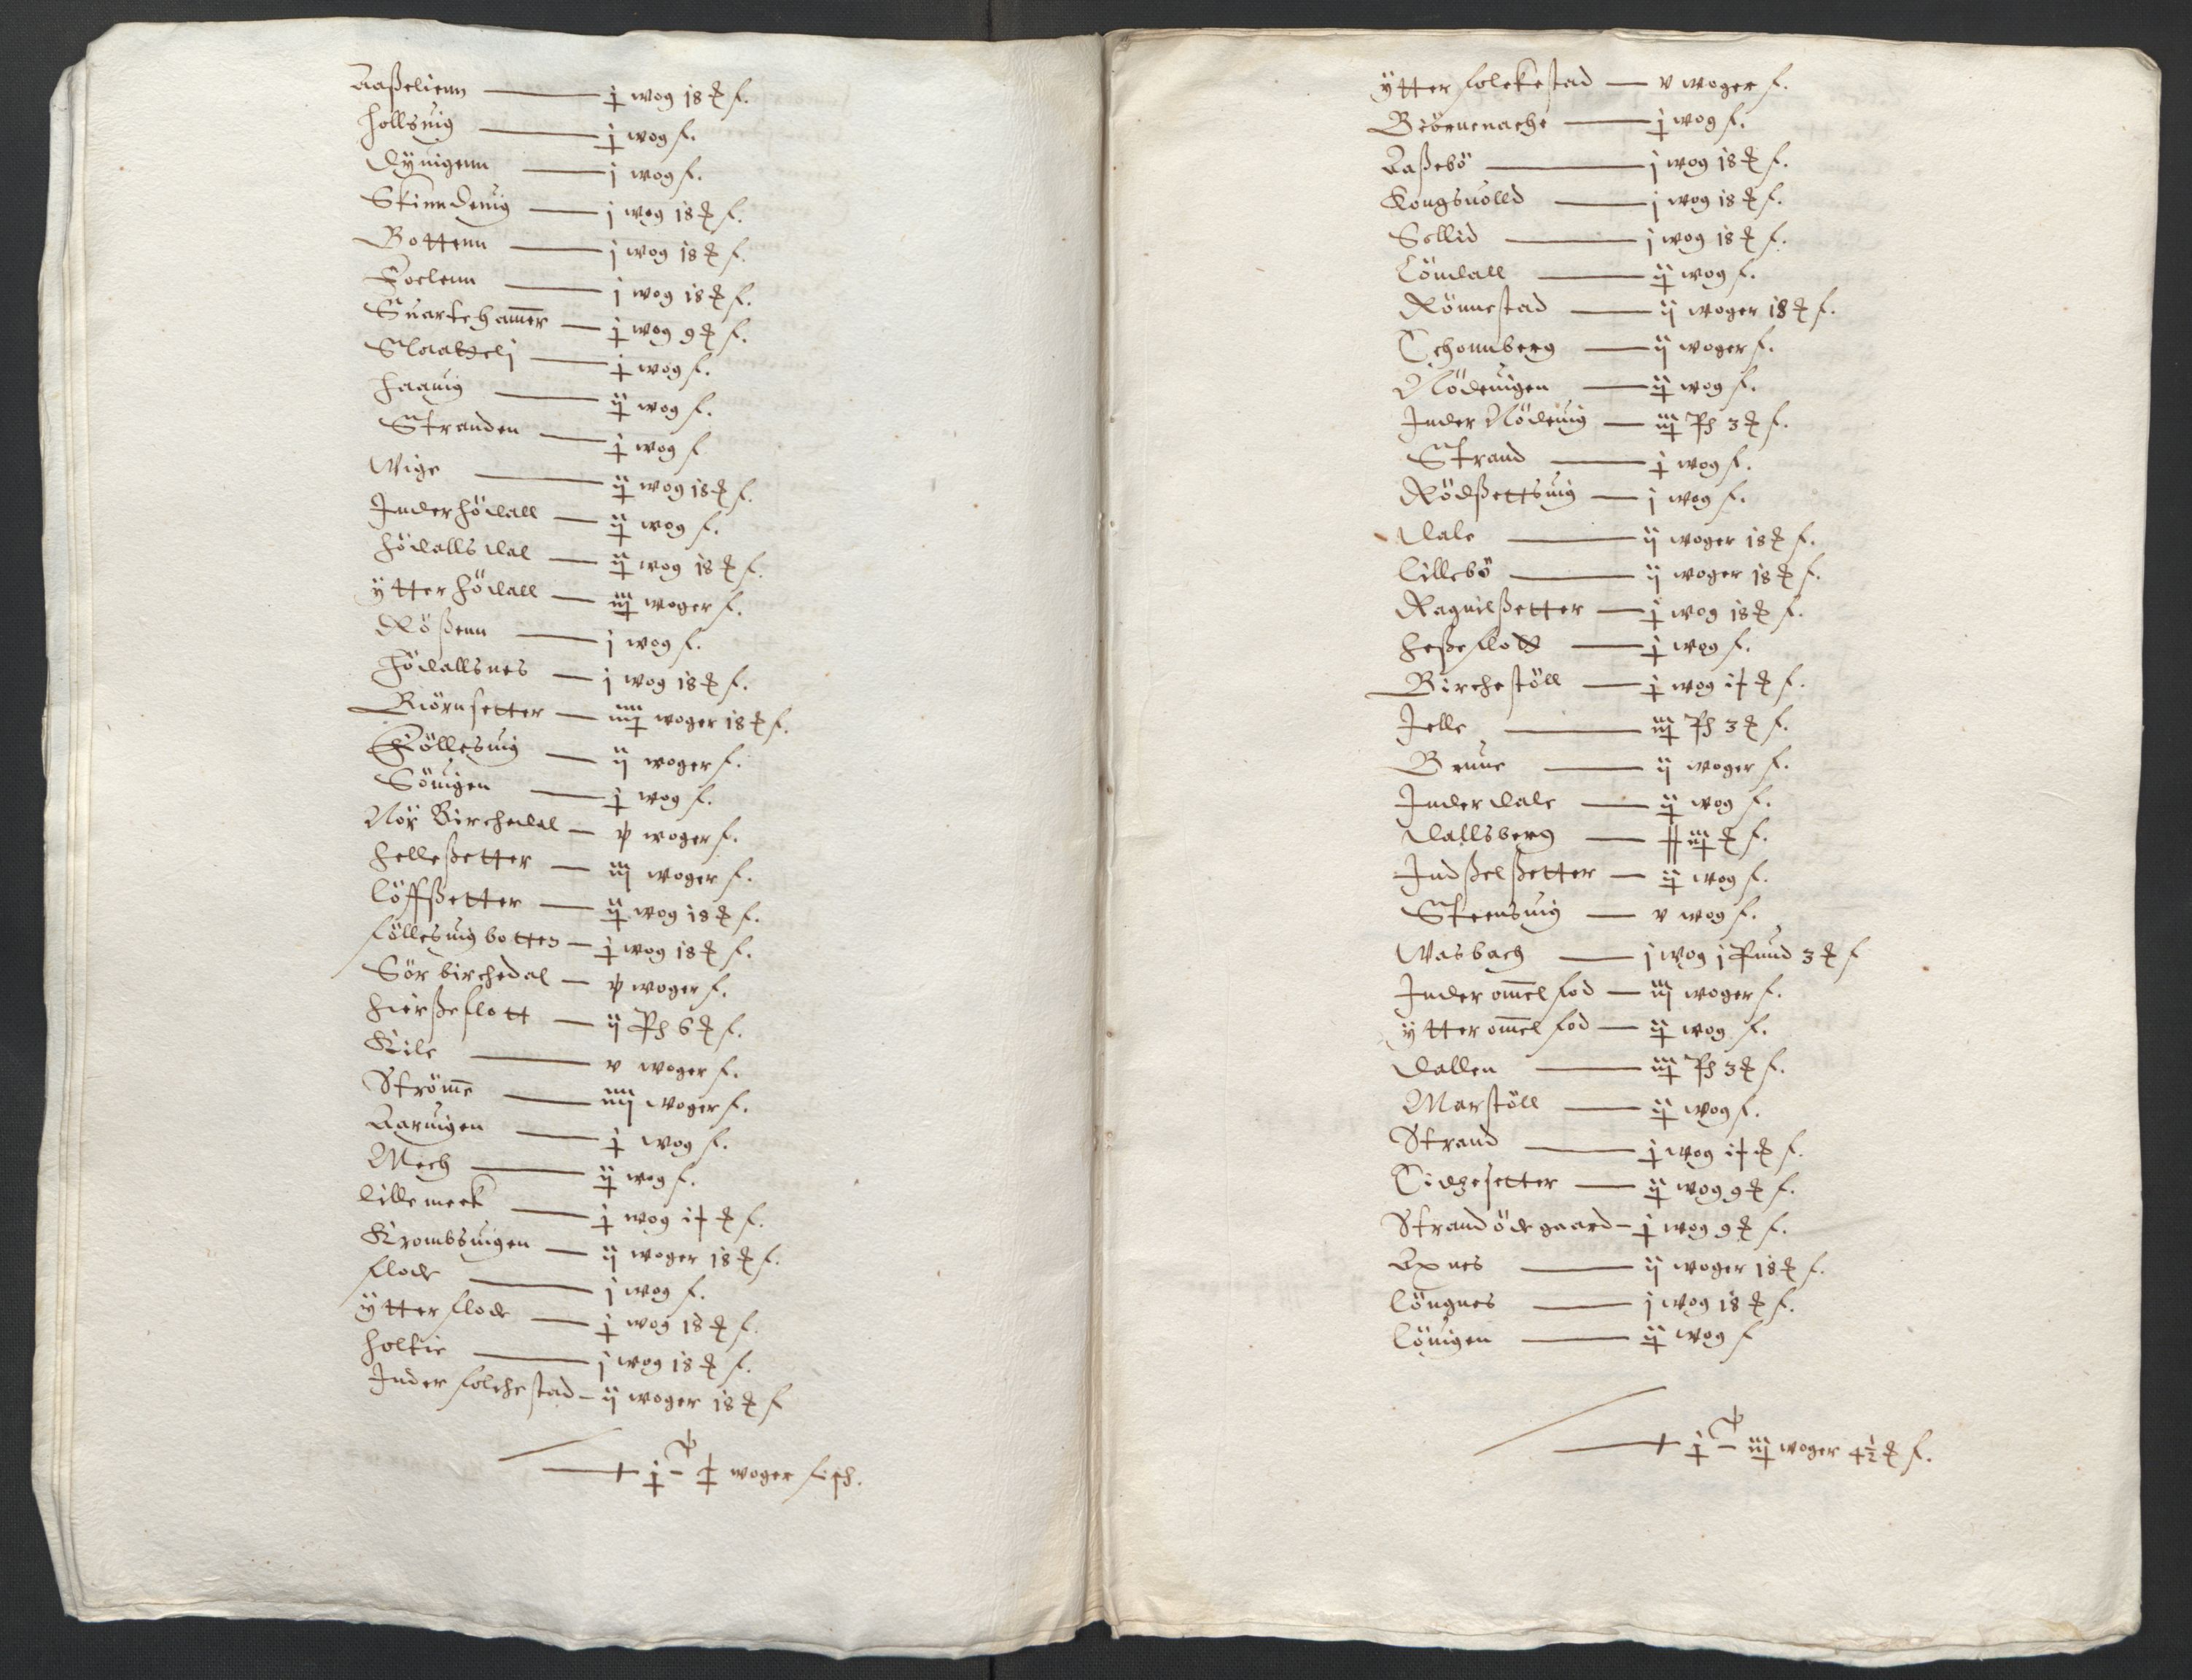 Aaßelienn — j wog 18 ℔ f.
Hollsuig — j wog f.
Dÿuigenn — j wog f.
Skinndeuig — j wog 18 ℔ f.
Bottenn — j wog 18 ℔ f.
Foelenn — j wog 18 ℔ f.
Suartehamer — j wog 9 ℔ f.
Slaattelj — j wog f.
Haauig — ij wog f.
Stranden — j wog f
Wige — ij wog 18 ℔ f.
Inderhödall — ij wog f.
Hödallsdal — ij wog 18 ℔ f.
ÿtterhödall — iij woger f.
Rößenn — j wog f.
Hödallsnes — j wog 18 ℔ f.
Biörnsetter — iiij woger 18 ℔ f.
Föllesuig — ij woger f.
Söuigen — j wog f.
Nör Birchedal — v woger f.
Helleßetter — iij woger f.
Löffßetter — ij wog 18 ℔ f.
Föllesuigbotten — j wog 18 ℔ f.
Sör birchedal — v woger f.
Hierßeflott — ij P 6 ℔ f.
Kile — v woger f.
Ströme — iiij woger f.
Aaruigen — j wog f.
Mech — ij wog f.
Lillemeek — j wog i ℔ f.
Krombsuigen — ij woger 18 ℔ f.
Flode — j wog f.
ÿtter flode — j wog 18 ℔ f.
Holkie — j wog 18 ℔ f.
Inder folchestad — ij woger 18 ℔ f
woger fisch.
ÿtter folckestad — v woger f.
Biörnenache — j wog f.
Aaßebö — j wog 18 ℔ f.
Kongsuolld — j wog 18 ℔ f.
Sellid — j wog 18 ℔ f.
Löudall — ij wog f.
Rönnestad — ij woger 18 ℔ f.
Tchonnberg — ij woger f.
Nödeuigen — ij wog f.
Inder Nödeuig — iij P 3 ℔ f.
Strand — j wog f.
Rödßettsuig — j wog f.
Dale — ij woger 18 ℔ f.
Lillebö — ij woger 18 ℔ f.
Ragnilßetter — j wog 18 ℔ f.
Heßeflott — j wog f.
Birchestöll — j wog i ℔ f.
Jelle — iij P 3 ℔ f.
Brune — ij woger f.
Inderdale — ij wog f.
Dallsberg — iij ℔ f.
Indßelßetter — ij wog f.
Steensuig — v wog f.
Wasbach — j wog j Pund 3 ℔ f
Inder omelfod — iij woger f.
ÿtter omelfod — ij wog f.
Dallen — iij P 3 ℔ f.
Marstöll — ij wog f.
Strand — j wog i ℔ f.
Tidgesetter — ij wog 9 ℔ f.
Strand öde gaard — j wog 9 ℔ f.
Axnes — ij woger 18 ℔ f.
Löngnes — j wog 18 ℔ f.
Löuigen — ij wog f
iij woger 4½ ℔ f.